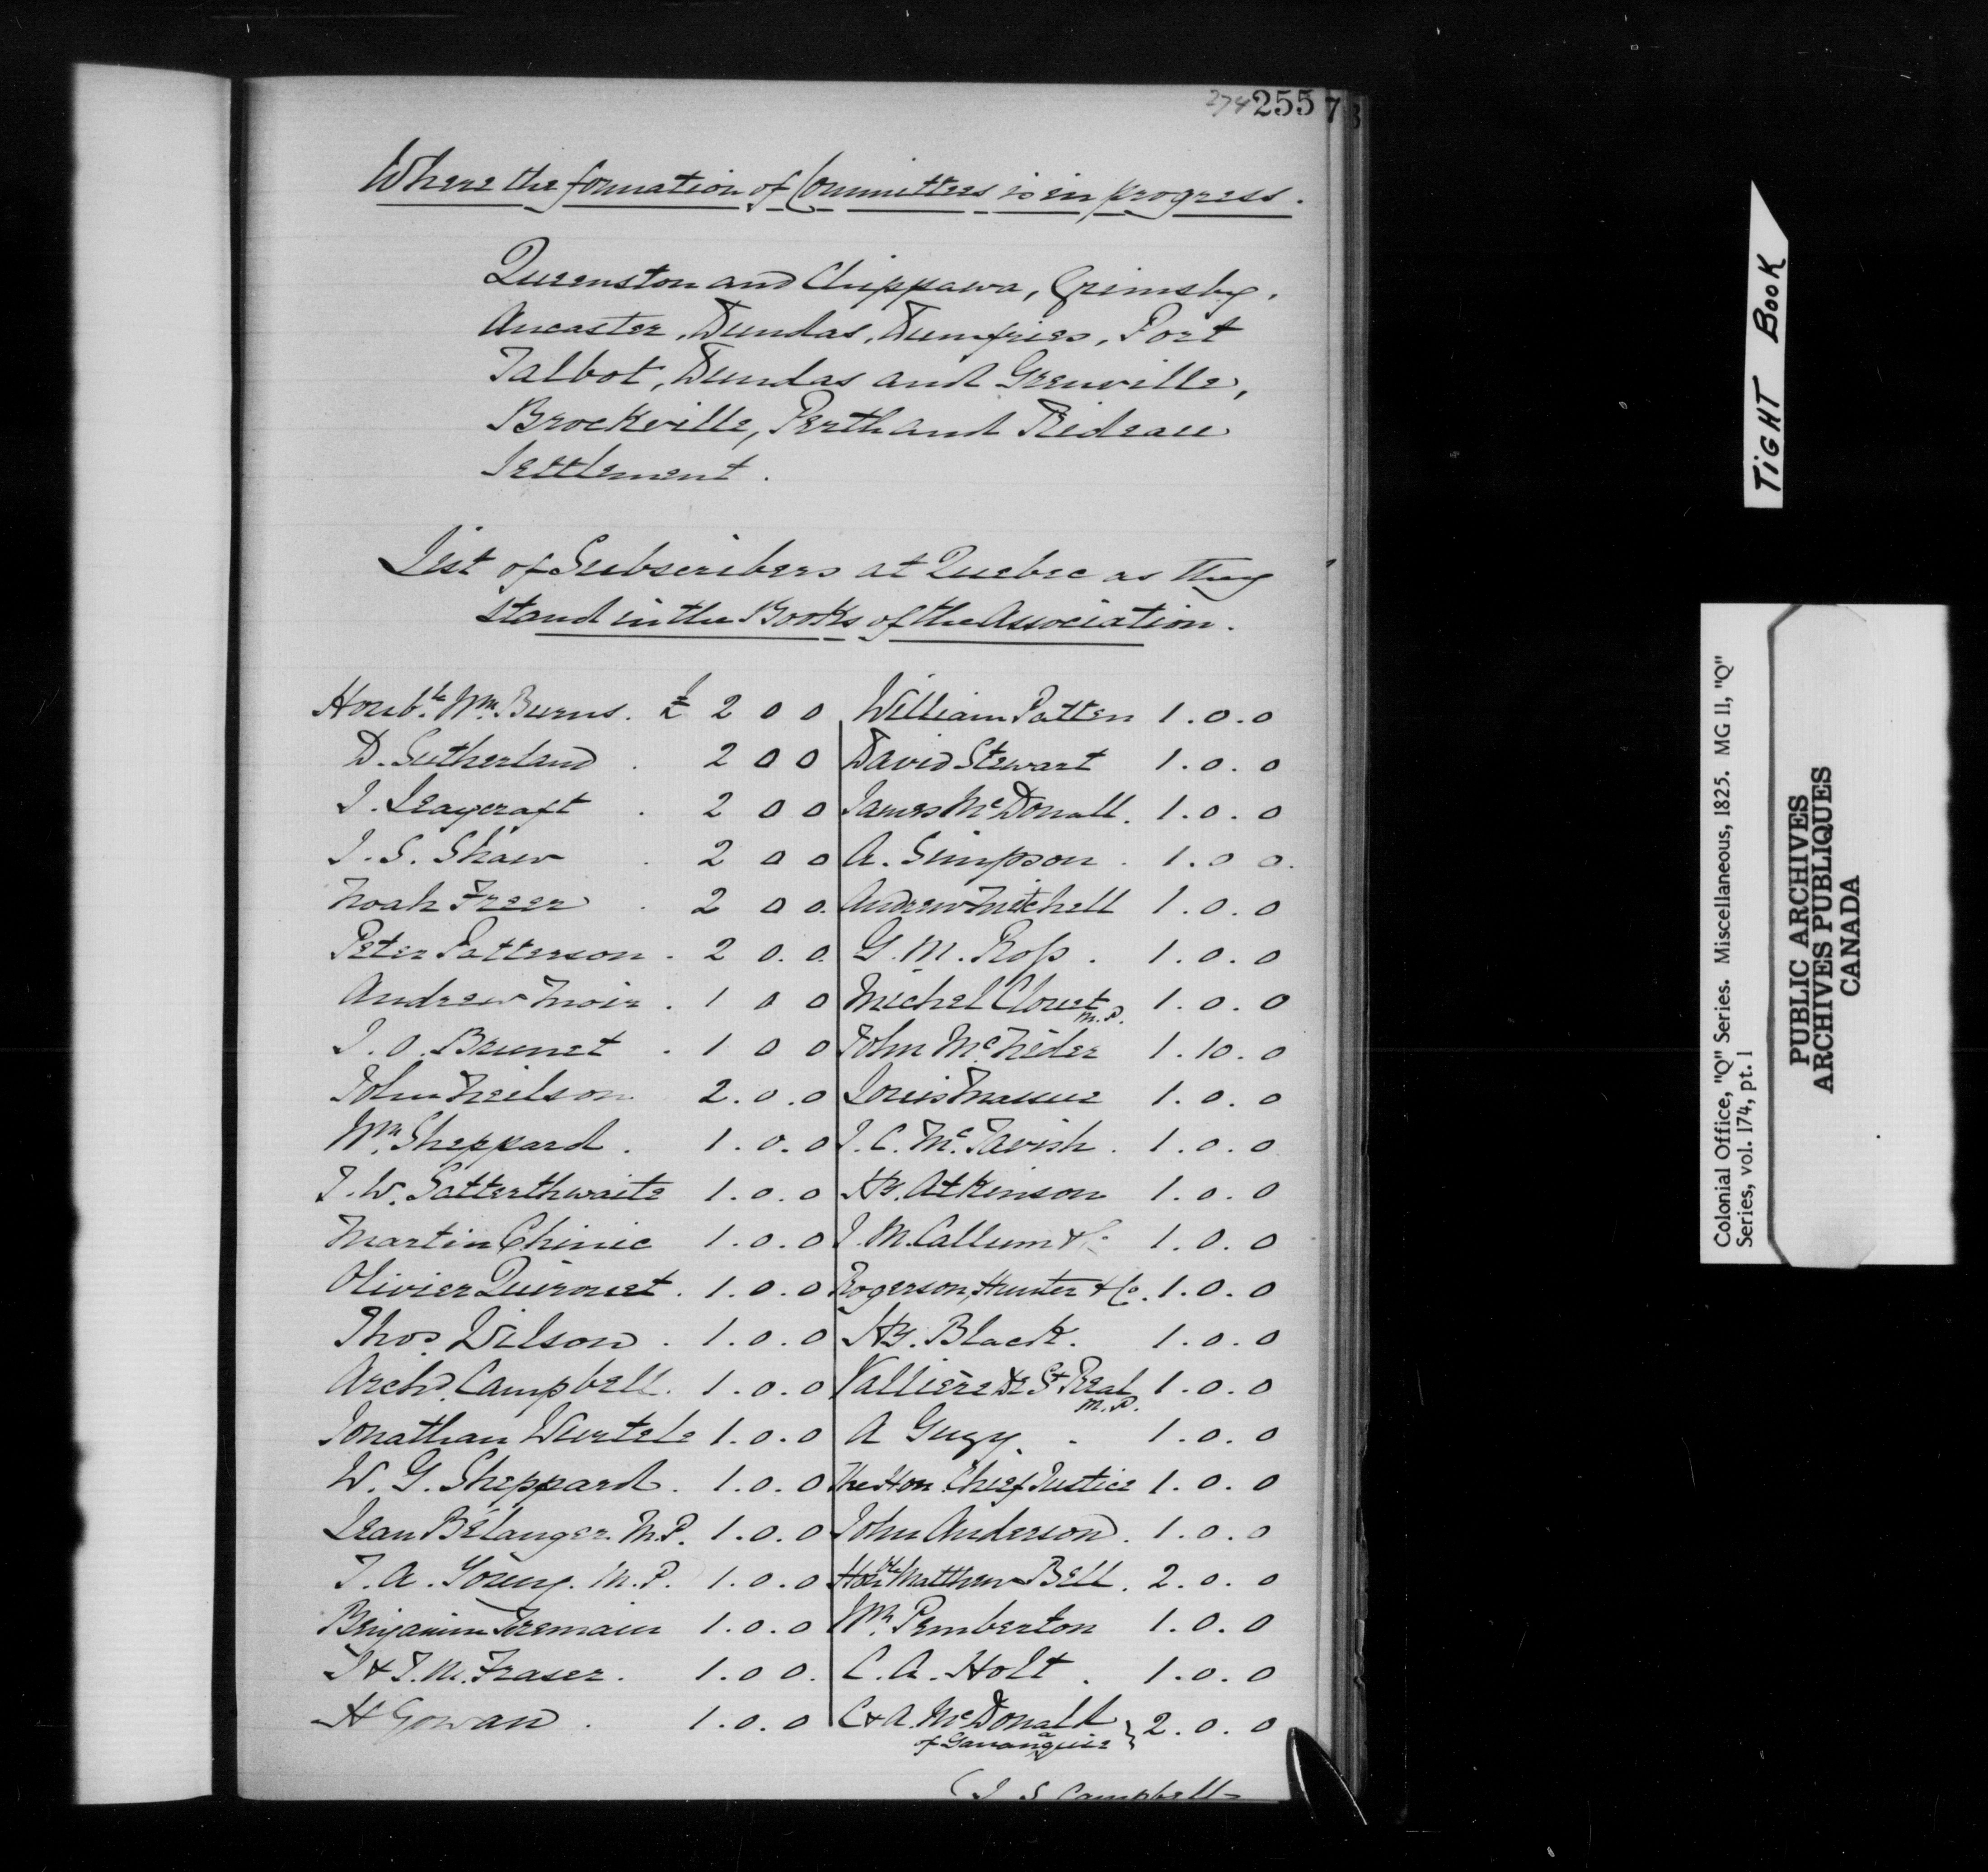 274 255
Where the formation of Committees is in progress.
Queenston and Chippawa, Grimsby,
Ancaster, Dundas, Dumfries, Port
Talbot, Dundas and Grenville,
Brockville, Perth and Rideau
Settlement.
List of Subscribers at Quebec as they
stand in the Books of the Association.
Honb.le Wm. Burns. £ 2 0 0 William Patten 1.0.0
D. Sutherland . 2 0 0 David Stewart 1.0.0
J. Leaycraft . 2 0 0 James McDonall. 1.0.0
J. S. Shaw . 2 0 0 A. Simpson . 1.0 0.
Noah Freer . 2 0 0. Andrew Mitchell 1.0.0
Peter Patterson . 2 0.0. G. M. Ross . 1.0.0
Andrew Moir . 1 0 0 Michel Clouet M.P. 1.0.0
J. O. Brunet . 1 0 0 John McNider 1.10.0
John Neilson 2.0.0 Louis Massue 1.0.0
Wm. Sheppard . 1.0.0 J. C. McTavish . 1.0.0
J. W. Satterthwaite 1.0.0 Hy. Atkinson 1.0.0
Martin Chinic 1.0.0 J. M. Callum & Co 1.0.0
Olivier Quirouet . 1.0.0 Rogerson, Hunter & Co. 1.0.0
Thos Wilson . 1.0.0 Hy. Black. 1.0.0
Archd. Campbell. 1.0.0 Vallière de St Real M.P. 1.0.0
Jonathan Wurtele 1.0.0 A Gugy . . 1.0.0
W. G. Sheppard . 1.0.0 The Hon. Chief Justice 1.0.0
Jean Bélanger. M.P. 1.0.0 John Anderson . 1.0.0
T. A. Young. M.P. 1.0.0 Honble Matthew Bell . 2.0.0
Benjamin Tremain 1.0.0 Wm. Pemberton 1.0.0
J & J. M. Fraser. 1.0 0. C. A. Holt . 1.0.0
H Gowan . 1.0.0 C & A. McDonall } 2.0.0
of Gananaquie
J S Campbell
TIGHT BOOK
Colonial Office, "Q" Series. Miscellaneous, 1825. MG 11, "Q"
Series, vol. 174, pt. 1
PUBLIC ARCHIVES
ARCHIVES PUBLIQUES
CANADA